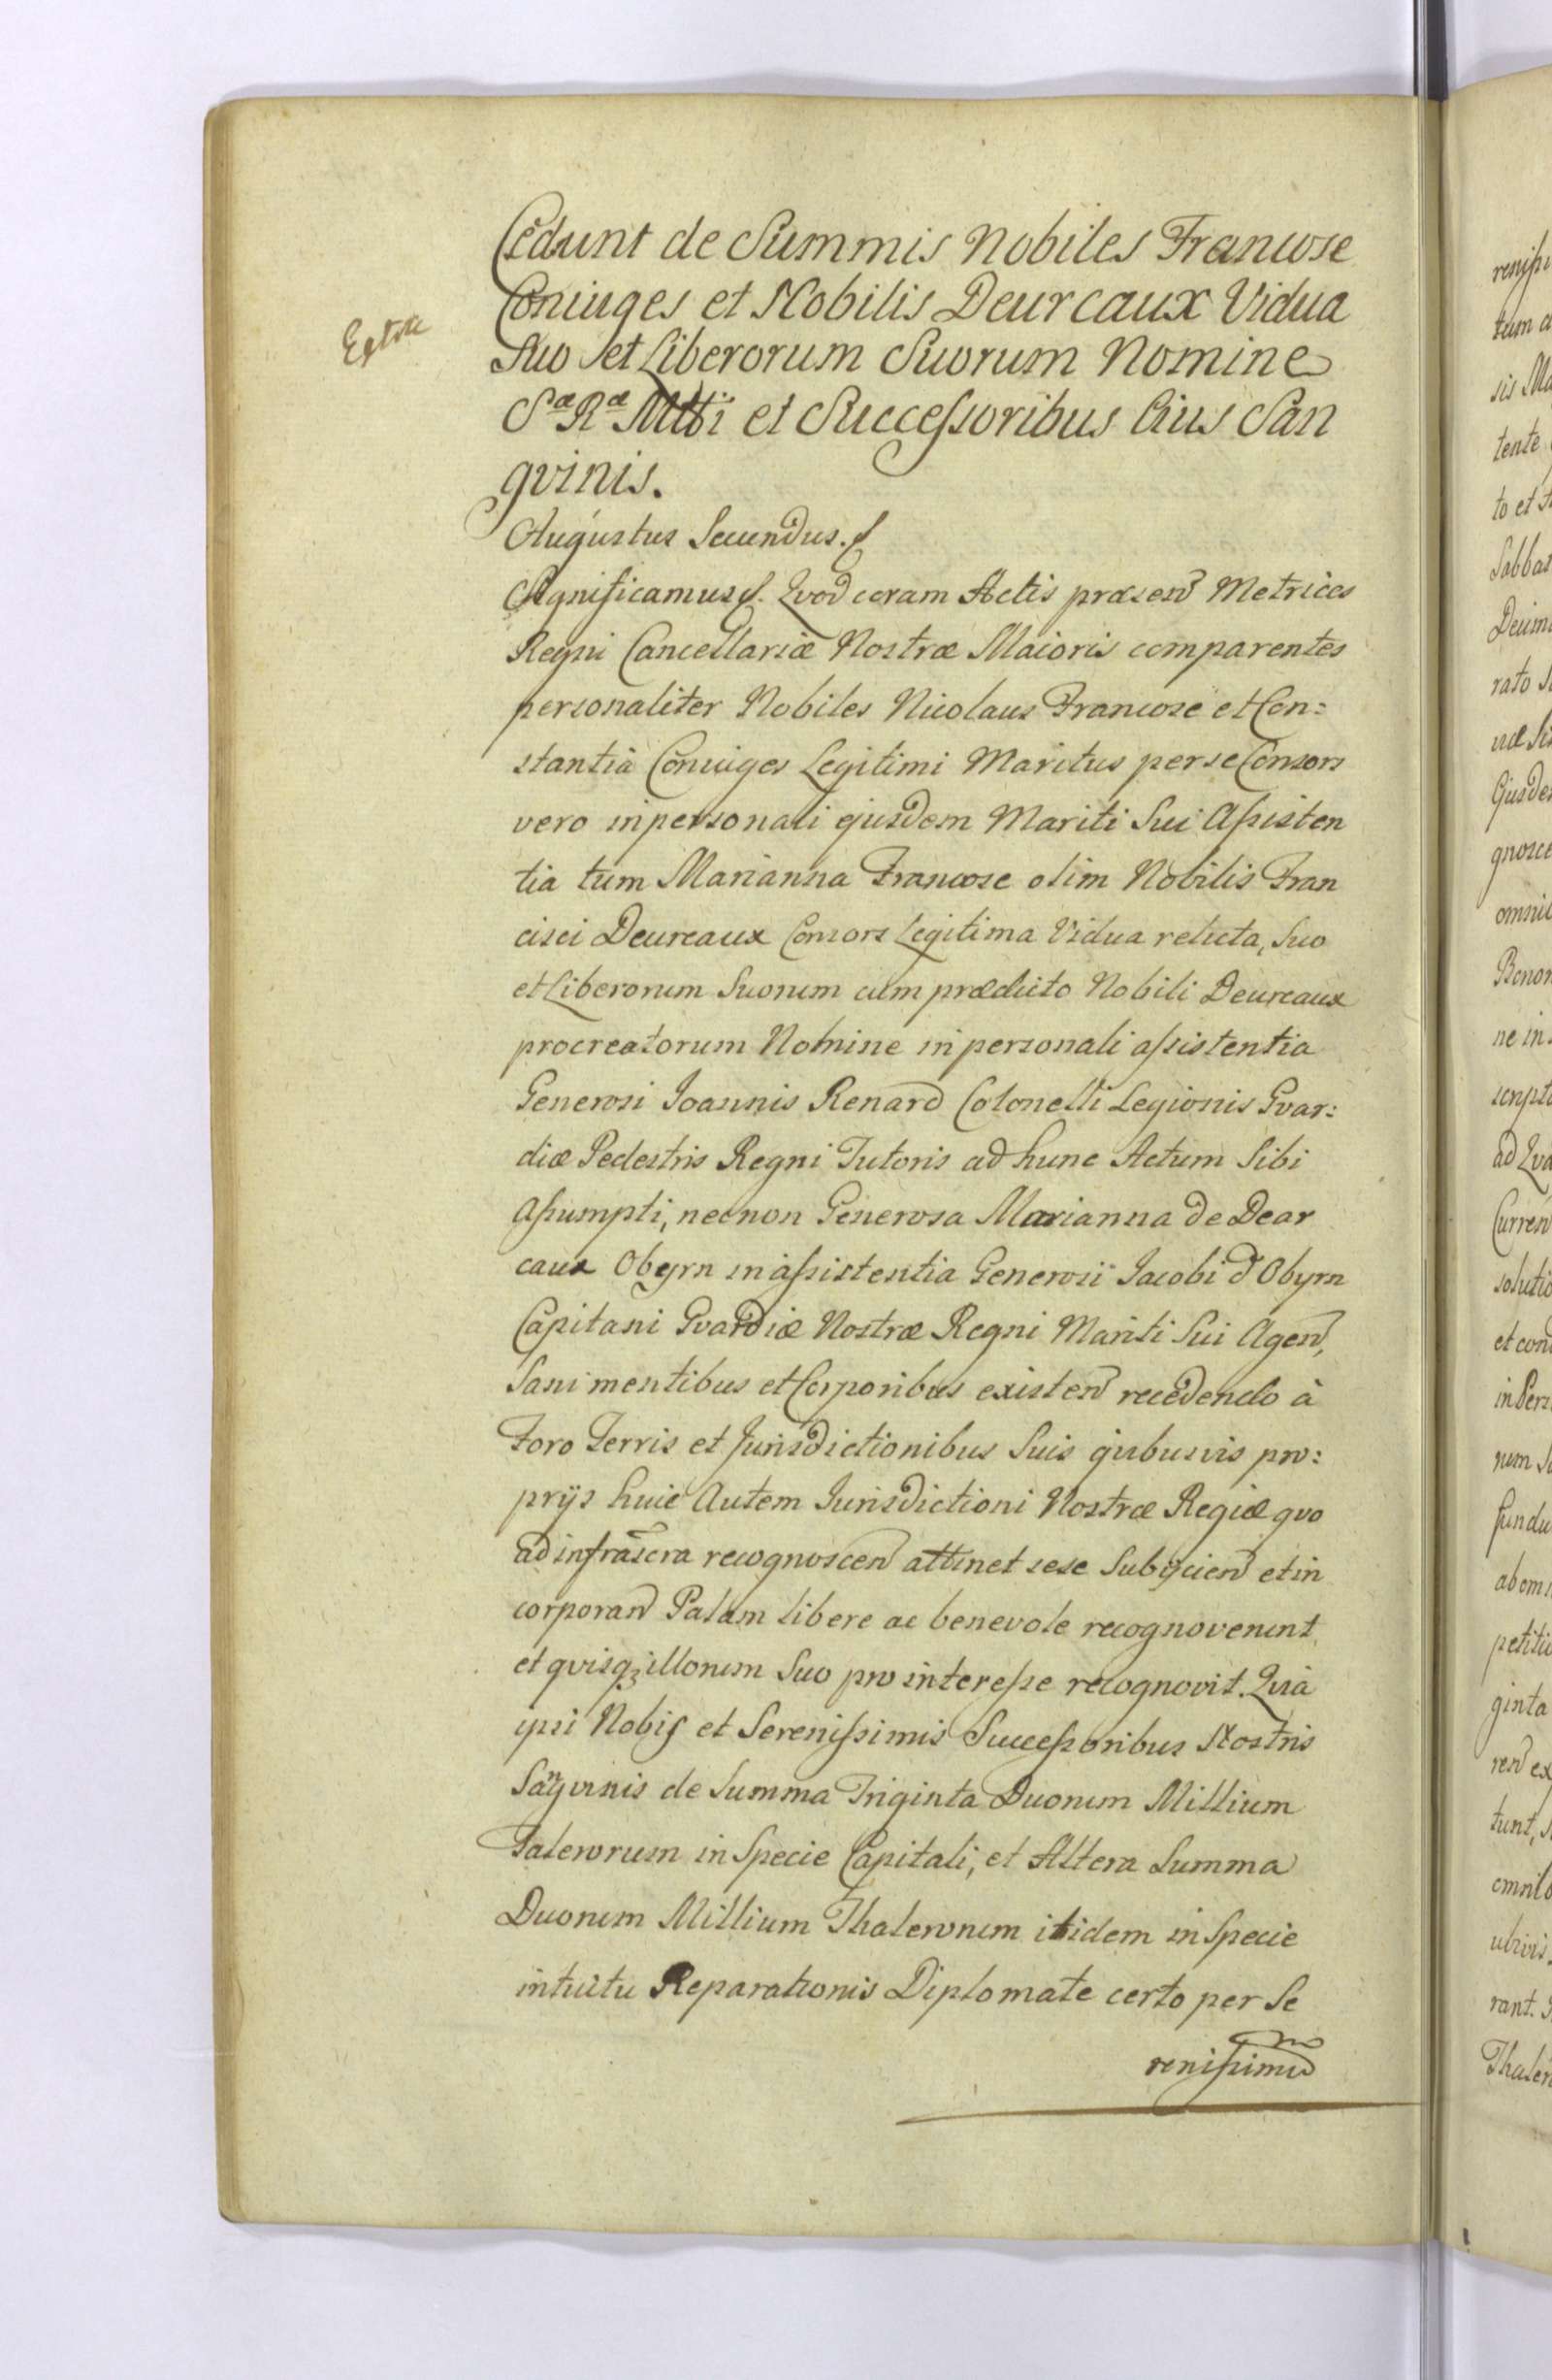 Cedunt de Summis Nobiles Francose
Coniuges et Nobilis Deurcaux Vidua
Suo et Liberorum Suorum Nomine
Sæ Ræ Mtti et Successoribus Eius San
gvinis.
Augustus Secundus.
Significamus. Qvod coram Actis præsen Metrices
Regni Cancellariæ Nostræ Maioris comparentes
personaliter Nobiles Nicolaus Francose et Con:
stantia Coniuges Legitimi Maritus per se Consors
vero in personali ejusdem Mariti Sui Assisten
tia tum Marianna Francose olim Nobilis Fran
cisci Deureaux Consors Legitima Vidua relicta, Suo
et Liberorum Suorum cum prædicto Nobili Deureaux
procreatorum Nomine in personali assistentia
Generosi Joannis Renard Colonelli Legionis Gvar:
diæ Pedestris Regni Tutoris ad hunc Actum Sibi
Assumpti, necnon Generosa Marianna de Dear
caux Obyrn in assistentia Generosi Jacobi d Obyrn
Capitani Gvardiæ Nostræ Regni Mariti Sui Agen,
Sani mentibus et Corporibus existen recedendo à
Foro Terris et Jurisdictionibus Suis qvibusvis pro:
prijs huic Autem Jurisdictioni Nostræ Regiæ qvo
ad infrascra recognoscen attinet sese Subijcien et in
corporan Palam libere ac benevole recognoverunt
et qvisqz illorum Suo pro interesse recognovit. Qvia
ipsi Nobis et Serenissimis Successoribus Nostris
Sangvinis de Summa Triginta Duorum Millium
Talerorum in Specie Capitali, et Altera Summa
Duorum Millium Thalerorum itidem in Specie
intuitu Reparationis Diplomate certo per Se
renissimu